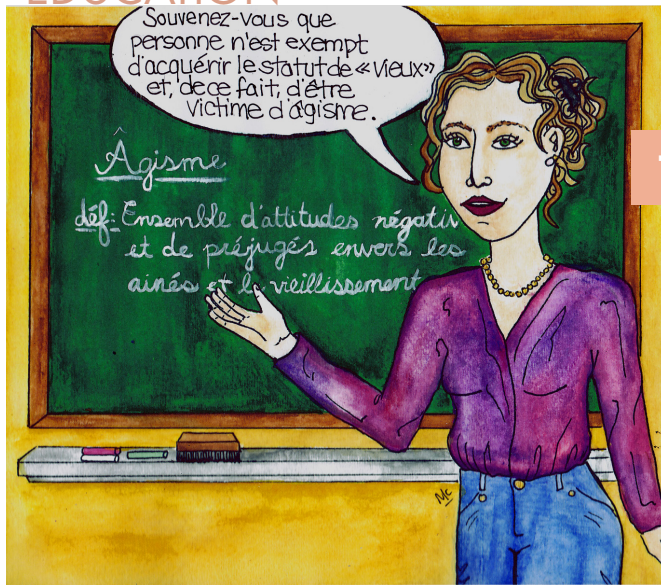 ÉDUCATION
Souvenez-vous que
personne n'est exempt
d'acquérir le statut de « vieux »
et, de ce fait, d'être
victime d'âgisme.
Âgisme
déf: Ensemble d'attitudes négativ
et de préjugés envers les
ainés et le vieillissement
Mc